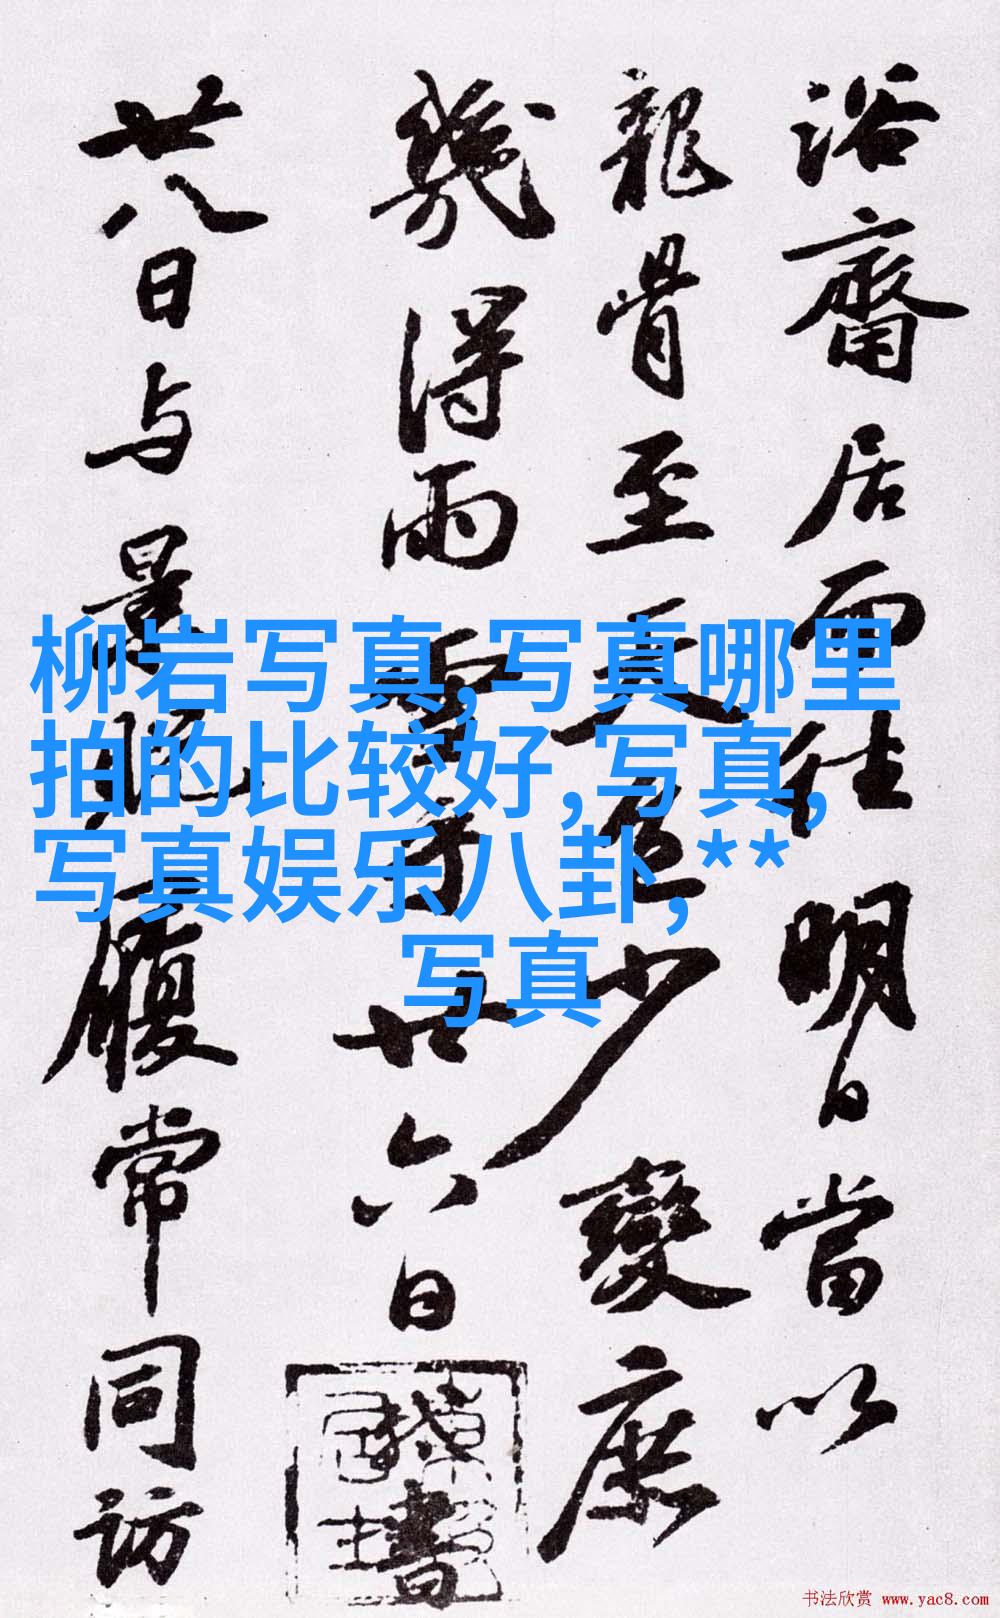 浴齋居而往明日當以
龍骨至天色少變庶
幾得雨雪乎廿六日書
廿八日与景貺履常同訪
柳岩写真,写真哪里
拍的比较好,写真,
写真娱乐八卦,**
写真
书法欣赏 www.yac8.com